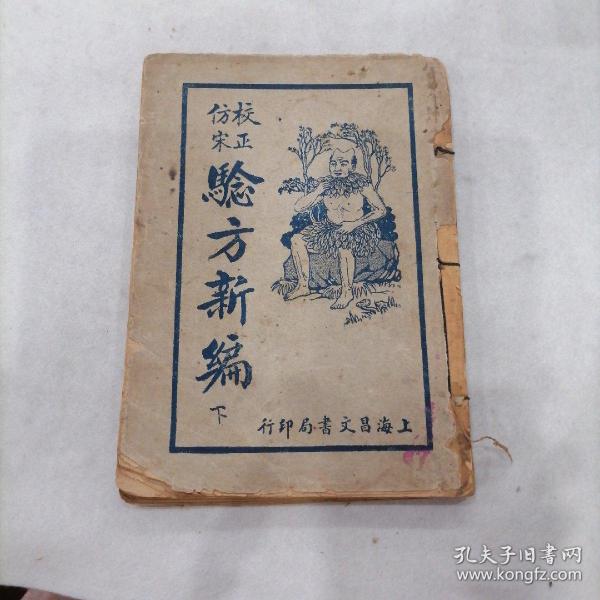 校正
仿宋
騐方新編
下
上海昌文書局印行
孔夫子旧書网
www.kongfz.com